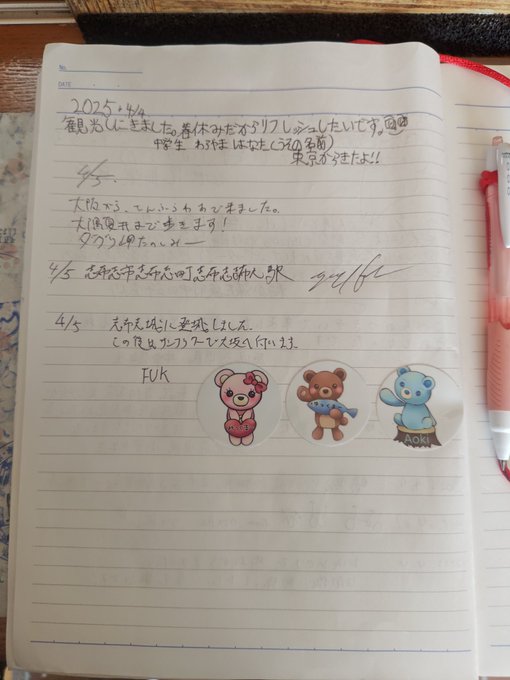 No.
DATE
2025.4/4
観光しにきました。春休みだからリフレッシュしたいです。
中学生 わらやま はなた(うその名前)
東京からきたよ!!
4/5.
大阪から、さんふらわあで来ました。
大隅夏井まで歩きます!
ダグリ岬たのしみー
4/5 志布志市志布志町志布志 志布志駅
4/5 志布志城に登城しました。
この後はサンフラワーで大阪へ行います。
FUK
Aoki